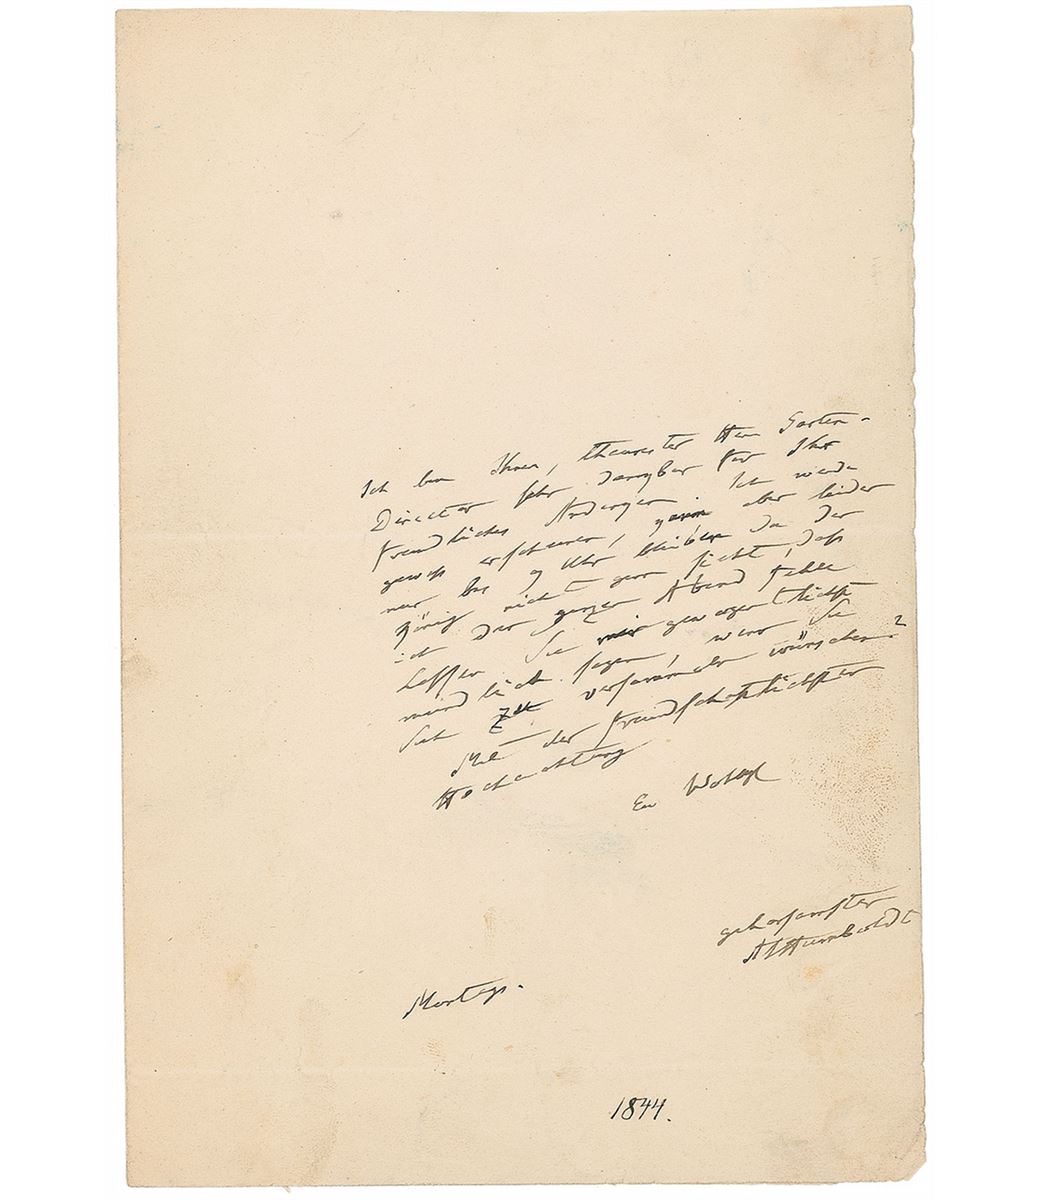 Ich bin Ihnen, theurester Herr Garten-
Director sehr dankbar für Ihr
freundliches Andenken. Ich werde
gewiss erscheinen, kann aber leider
nur bis 9 Uhr bleiben da der
König nicht gern sieht, dass
ich den ganzen Abend fehle.
Lassen Sie mir gewogentlichst
mündlich sagen, wenn Sie
Sich zu versammeln wünschen?
Mit der freundschaftlichsten
Hochachtung
Ew Wohlg
gehorsamster
AvHumboldt
Montags.
1844.